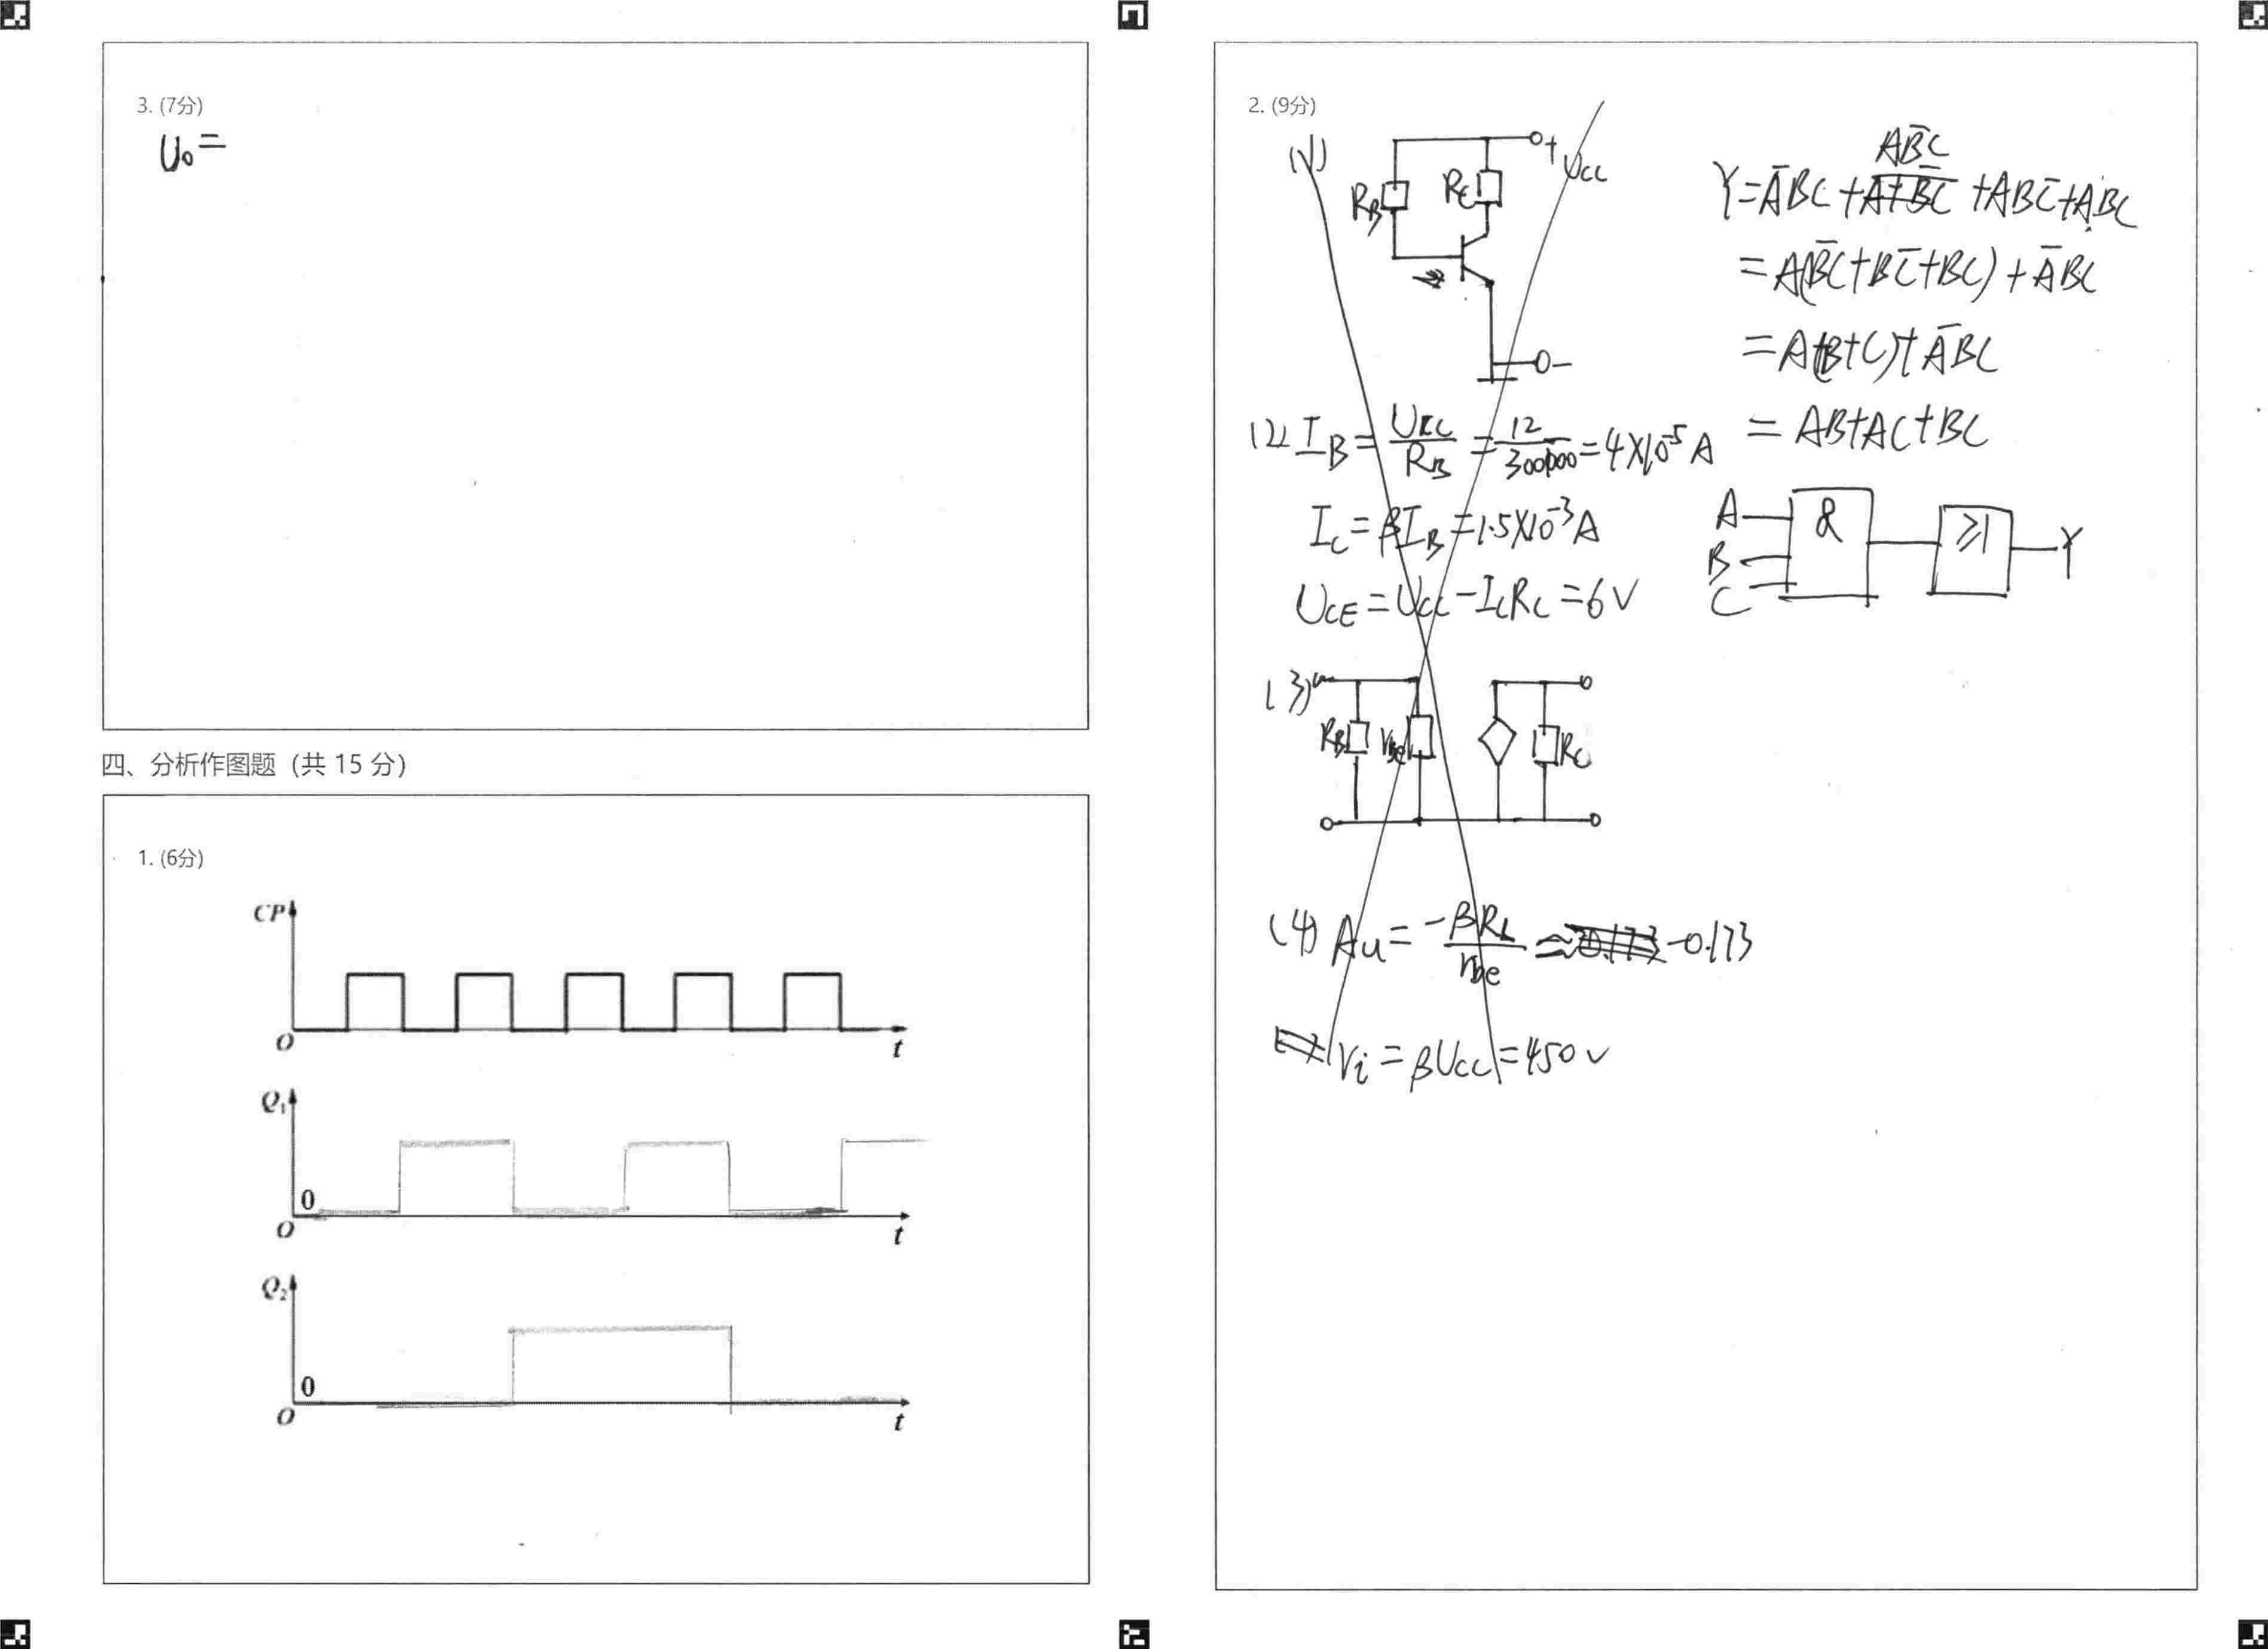 3. (7分)
U₀=
四、分析作图题（共 15 分）
1. (6分)
CP
O
t
Q₁
0
O
t
Q₂
0
O
t
2. (9分)
(1)
+Ucc
R_B
R_C
-
(2) I_B = U_CC/R_B = 12/300000 = 4×10⁻⁵ A
I_C = βI_B = 1.5×10⁻³ A
U_CE = U_CC - I_C R_C = 6V
(3)
R_B
r_be
R_C
(4) Au = -βR_L/r_be ≈ -0.173
r_i = βU_CC = 450V
AB̄C
Y = ĀBC + + ABC̄ + ABC
= A(B̄C + BC̄ + BC) + ĀBC
= A(B+C) + ĀBC
= AB+AC+BC
A
B
C
&
≥1
Y